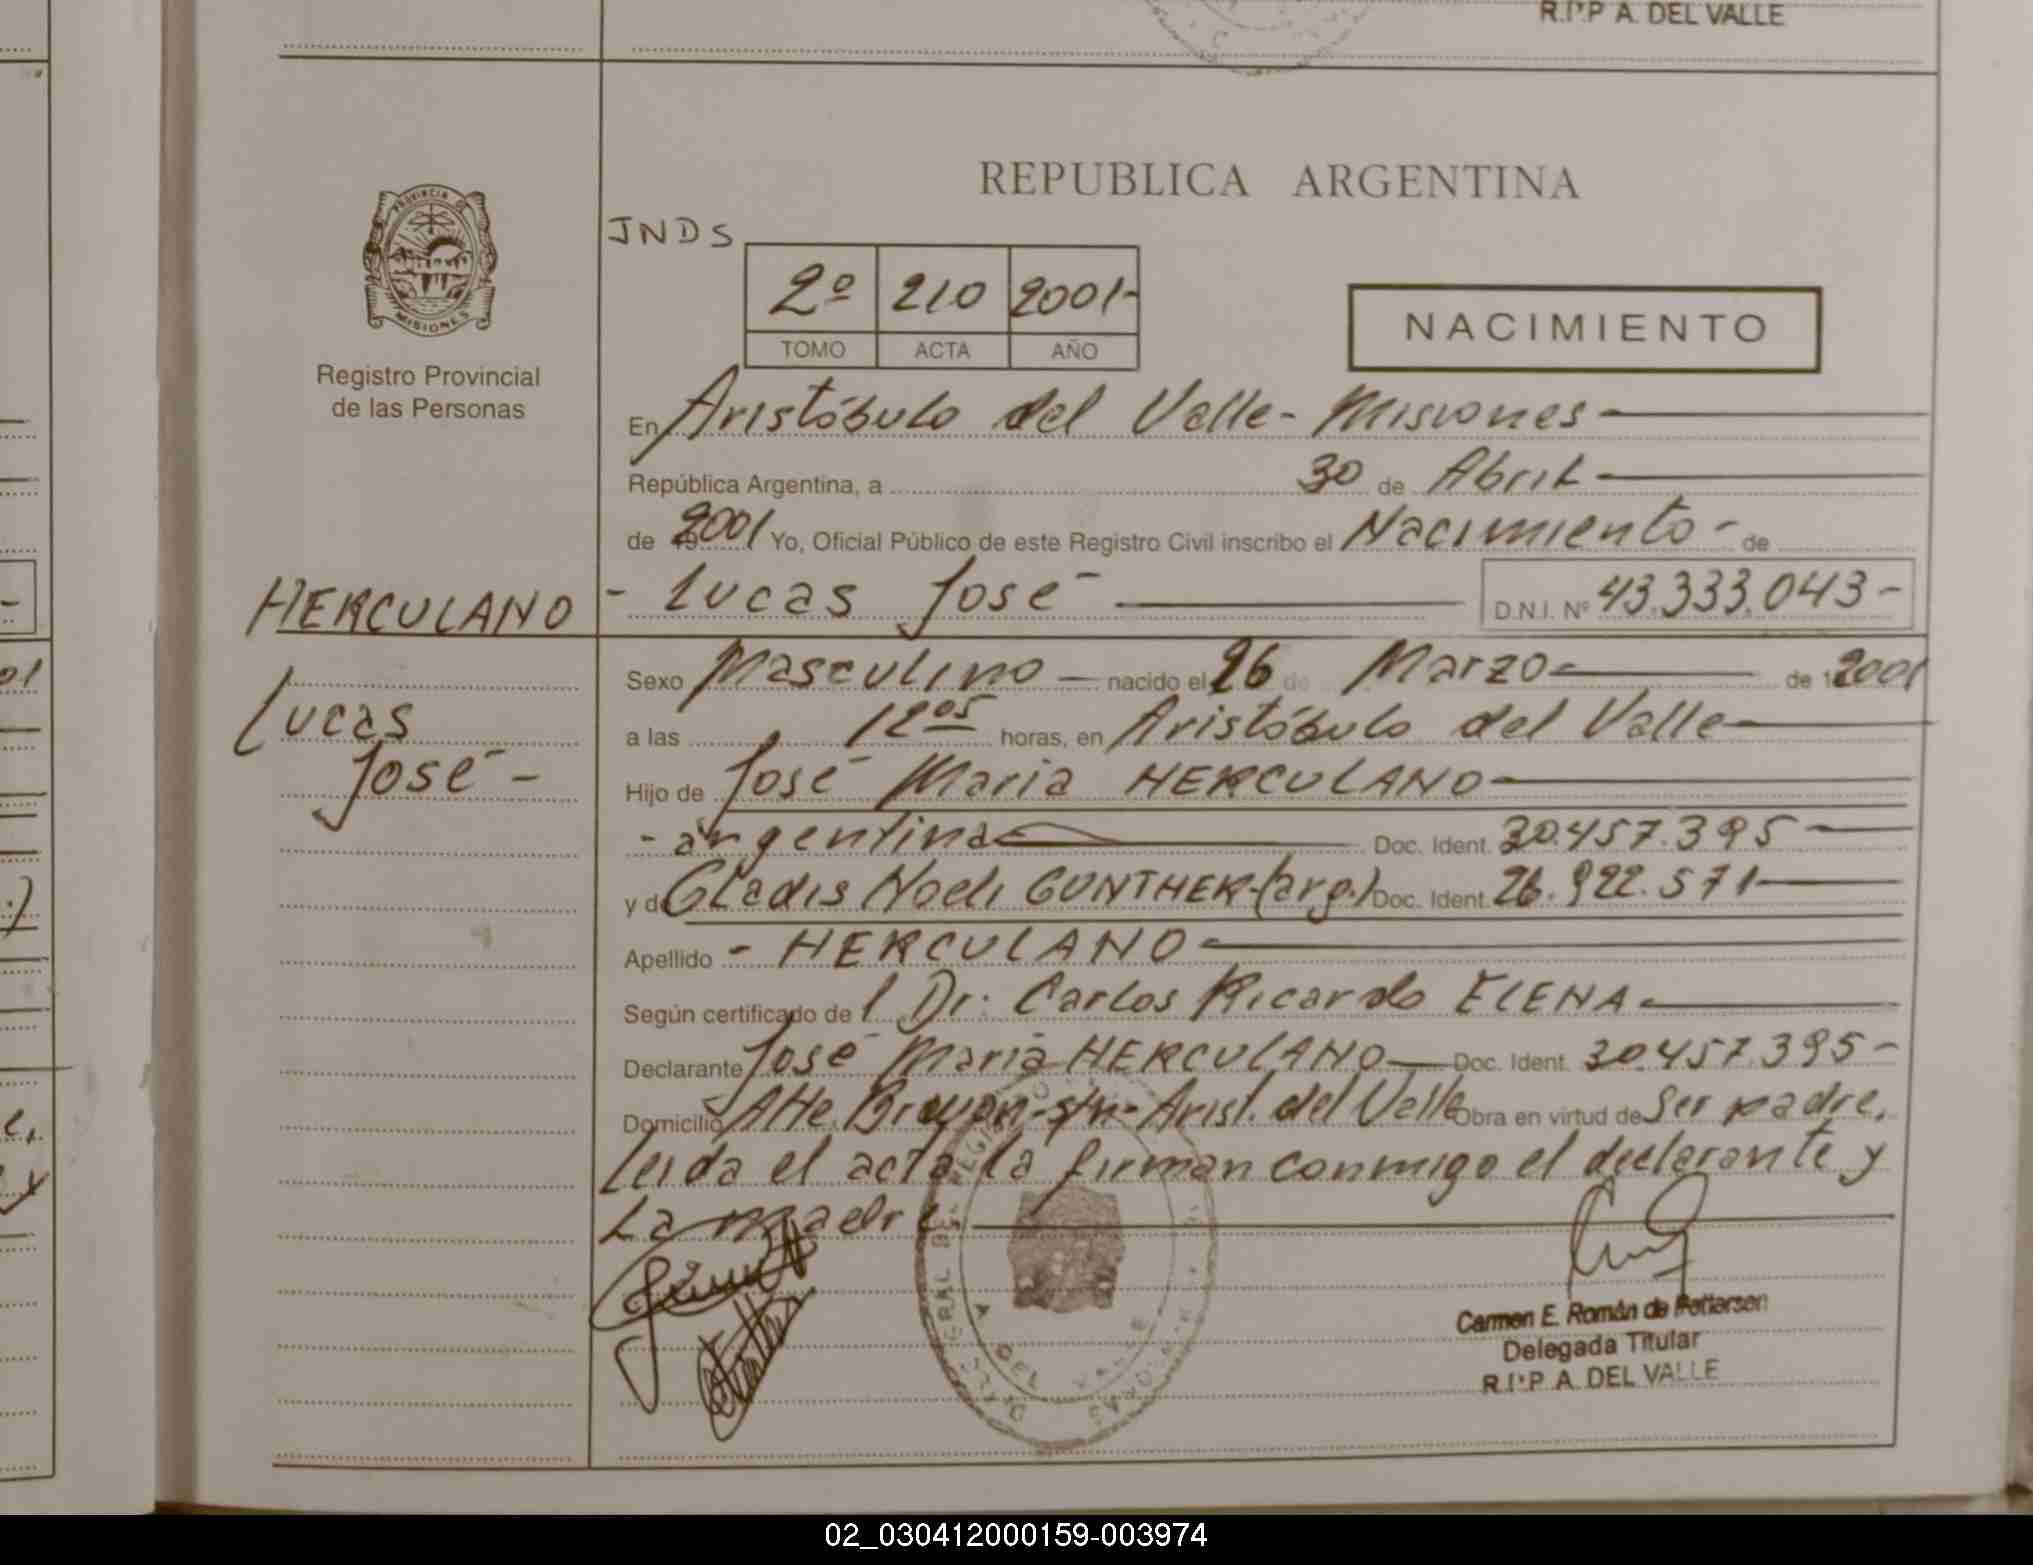 R.P.P A. DEL VALLE
REPUBLICA ARGENTINA
PROVINCIA DE
MISIONES
Registro Provincial
de las Personas
JNDS
2º 210 2001-
TOMO ACTA AÑO
NACIMIENTO
En Aristóbulo del Valle- Misiones
República Argentina, a 30 de Abril
de 2001 Yo, Oficial Público de este Registro Civil inscribo el Nacimiento - de
HERCULANO - Lucas José - D.N.I. Nº 43.333.043-
Lucas
José -
Sexo Masculino - nacido el 26 de Marzo de 2001
a las 12 05 horas, en Aristóbulo del Valle
Hijo de José Maria HERCULANO
- argentina Doc. Ident. 30.457.395
y de Gladis Noeli GUNTHER-(arg.) Doc. Ident. 26.922.571
Apellido - HERCULANO
Según certificado del Dr. Carlos Ricardo ELENA
Declarante José Maria HERCULANO Doc. Ident. 30.457.395-
Domicilio Alte. Brown-s/n- Arist. del Valle Obra en virtud de ser padre.
Leida el acta la firman conmigo el declarante y
La madre
A. DEL VALLE
Carmen E. Román de Pettersen
Delegada Titular
R.P.P A. DEL VALLE
02_030412000159-003974